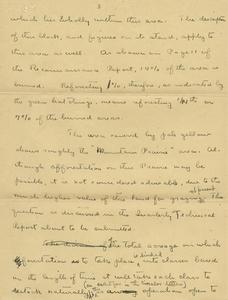 3
which lies wholly within this area. The description
of this block, and figures on its stand, apply to
this area as well. As shown on Page 11 of
the Reconnaissance Report, 14% of the area is
burned. Reforesting 1/2, therefore, as indicated by
the green hatchings, means reforesting 1/2 of 14% or
7% of the burned areas.
The area covered by pale yellow
shows roughly the "Mountain Prairie" area. Al-
though afforestation on this Prairie may be
possible, it is not considered advisable, due to the
much higher value of this land for grazing at present. The
question is discussed in the Quarterly Technical
Report about to be submitted.
the total acreage on which
forestation is to take place is divided into classes based
on the length of time it will take each class to
restock naturally